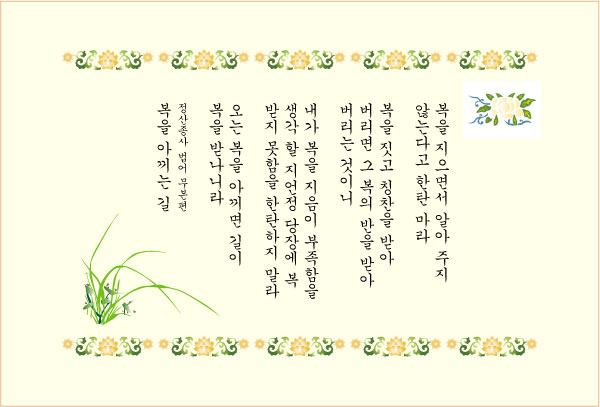 복을 지으면서 알아 주지
않는다고 한탄 마라
복을 짓고 칭찬을 받아
버리면 그 복의 반을 받아
버리는 것이니
내가 복을 지음이 부족함을
생각 할 지언정 당장에 복
받지 못함을 한탄하지 말라
오는 복을 아끼면 길이
복을 받나니라
정산종사 법어 무본편
복을 아끼는 길